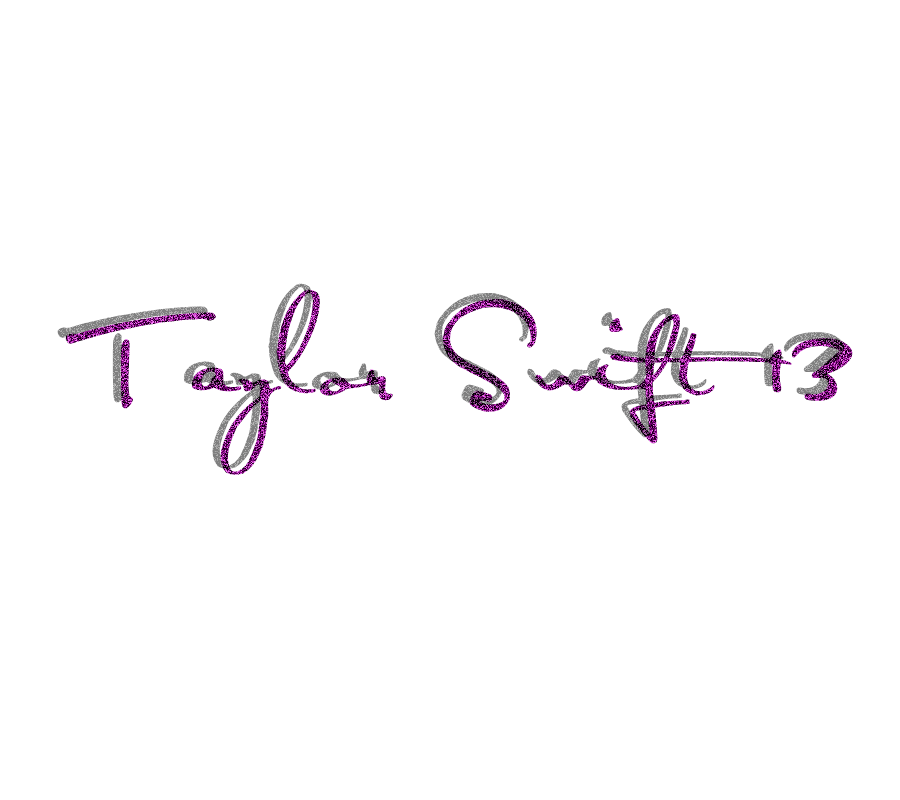 Taylor Swift 13